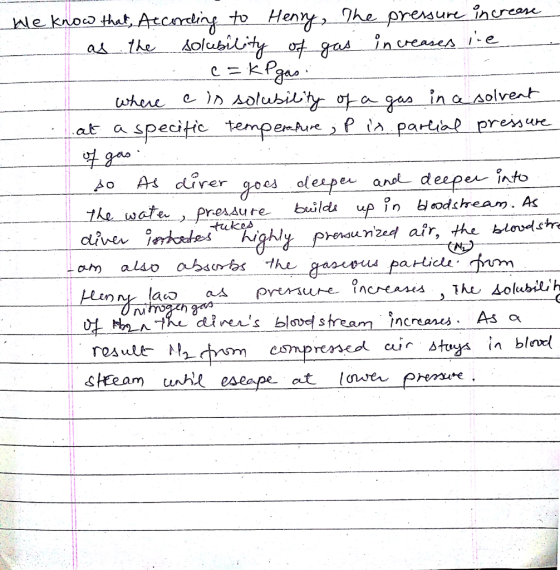 We know that, According to Henry, The pressure increase
as the solubility of gas increases i.e
c = kPgas.
where c is solubility of a gas in a solvent
at a specific temperature, P is partial pressure
of gas.
so As diver goes deeper and deeper into
the water, pressure builds up in bloodstream. As
diver takes highly pressurized air, the bloodstre
-am also absorbs the gaseous particle (N2). from
Henry law as pressure increases, The solubilit
of nitrogen gas the diver's bloodstream increases. As a
result N2 from compressed air stays in blood
stream until escape at lower pressure.